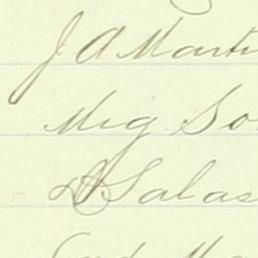 J A Marti
Mig So
D Salas